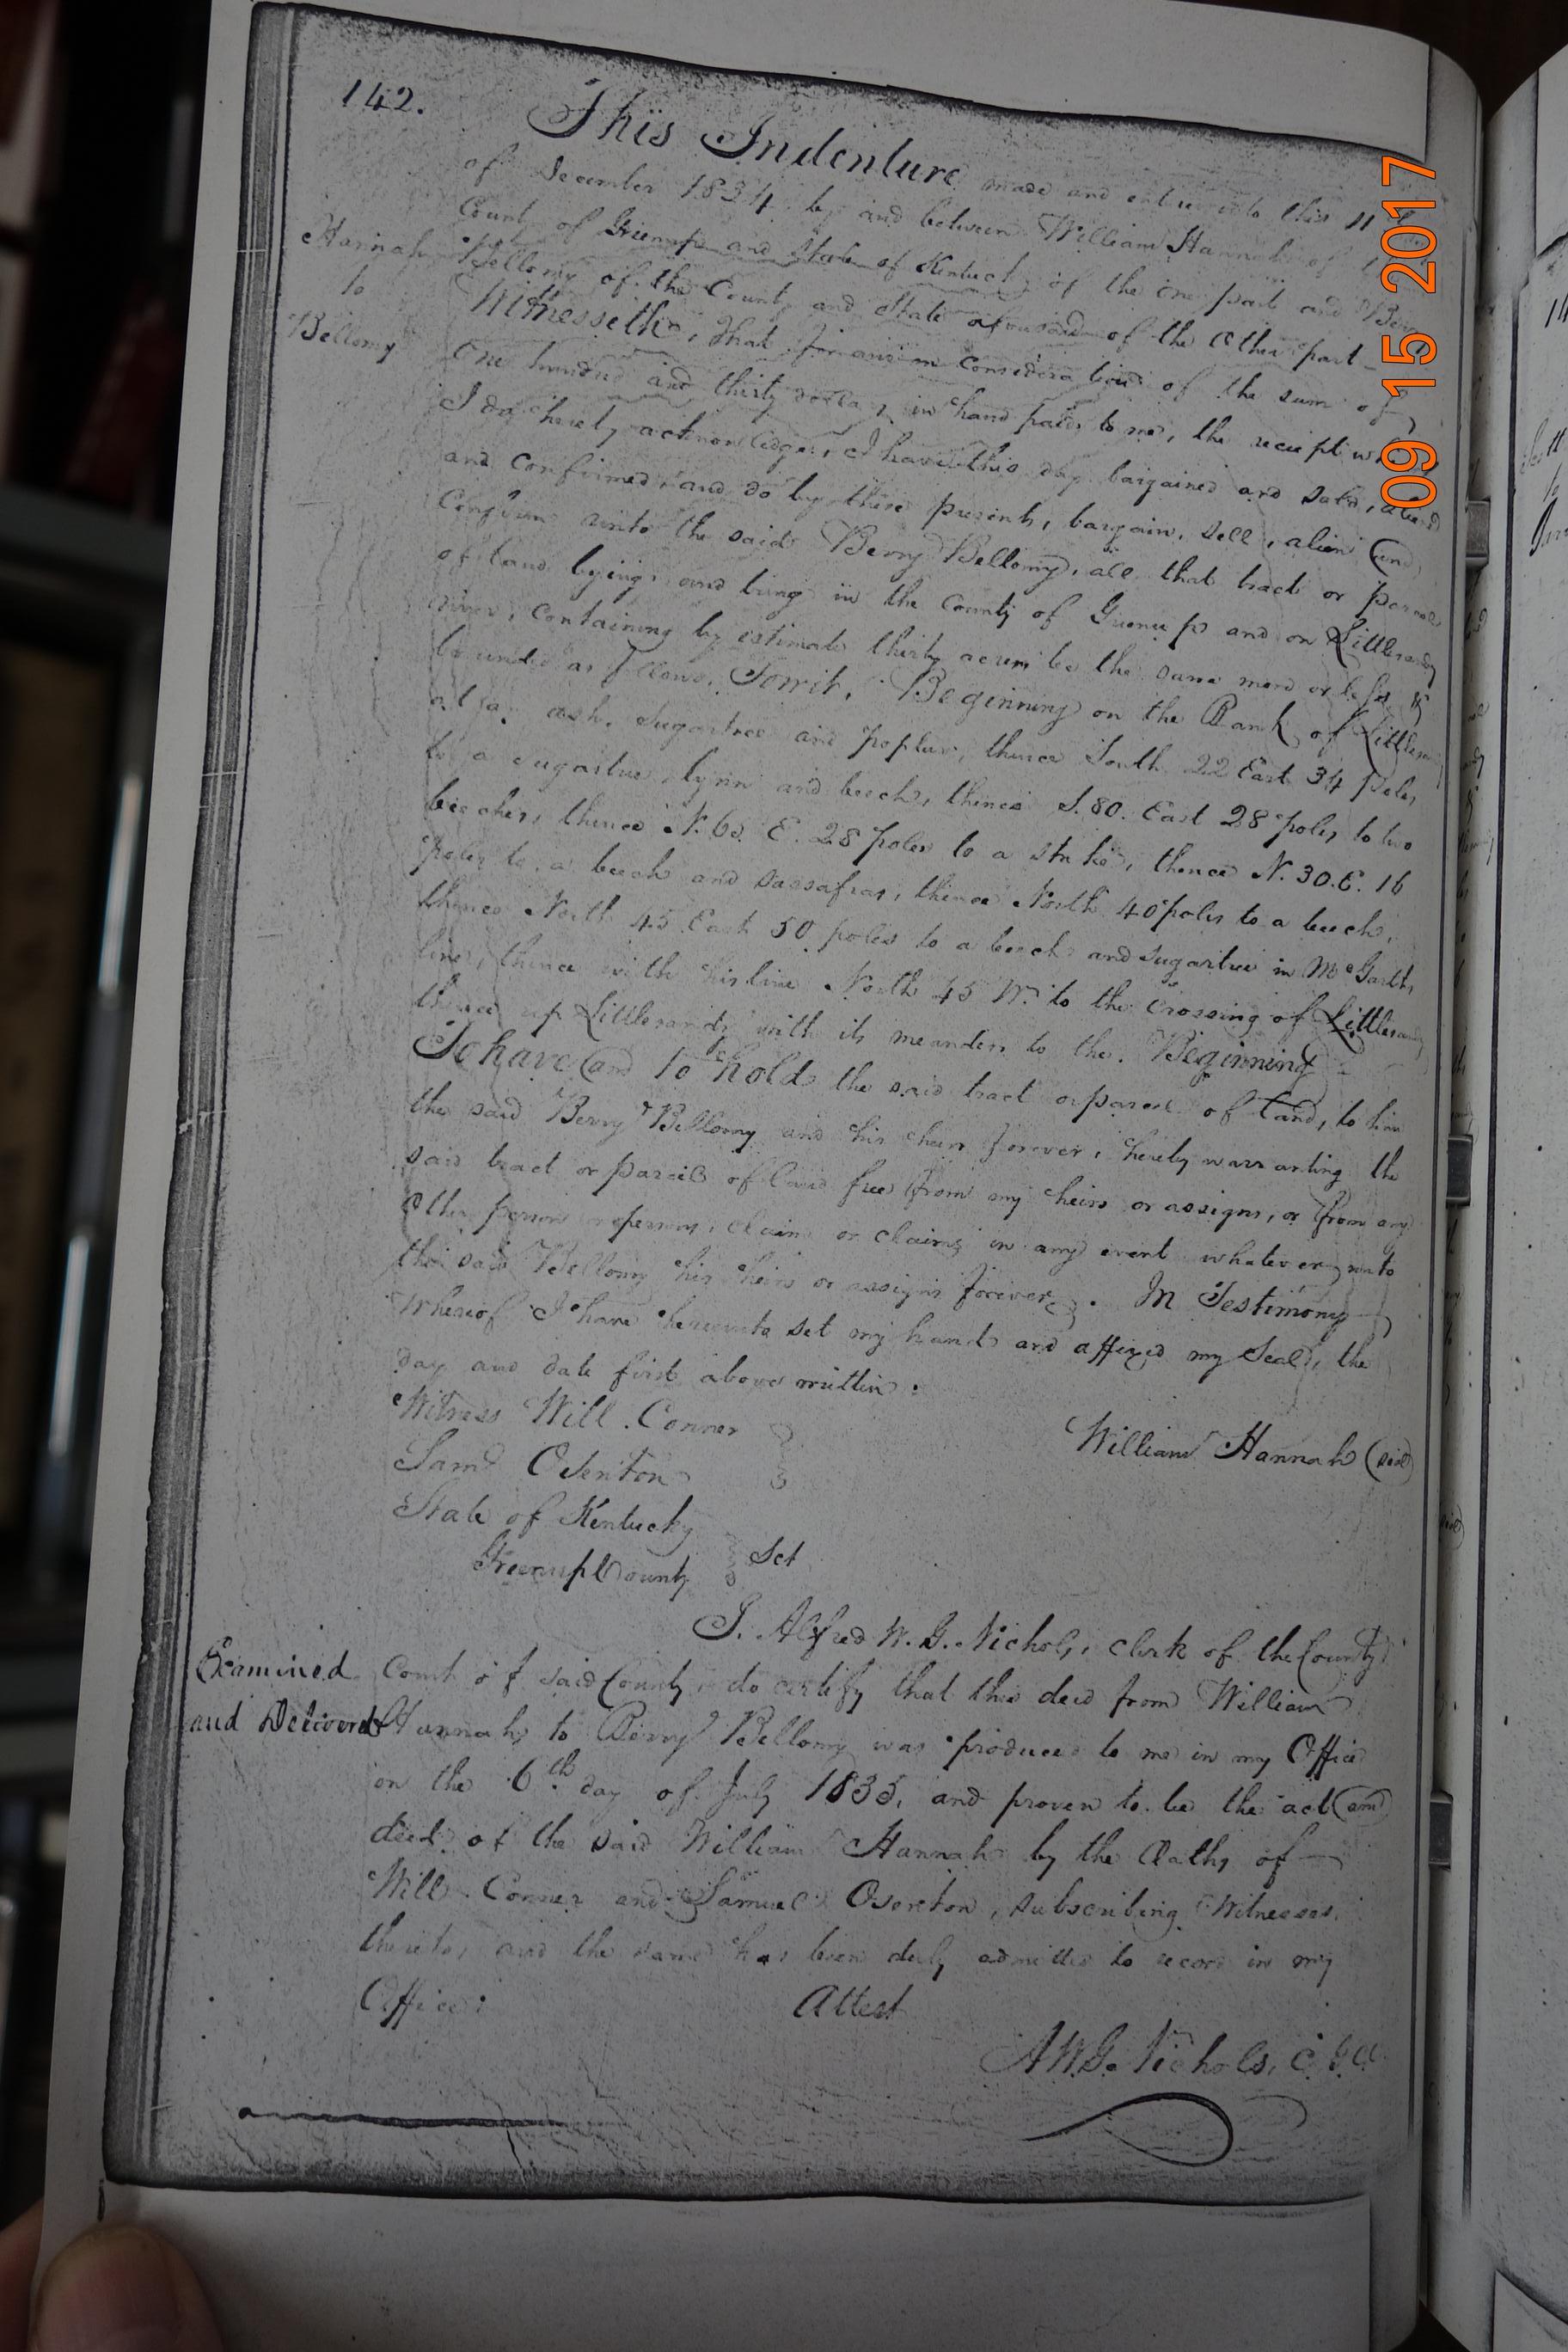 142.
This Indenture made and entered into this 11
of December 1834 by and between William Hannah of
County of Greenup and State of Kentucky of the one part and Berry
Hannah
to
Bellomy
Bellomy of the County and State aforesaid of the other part
Witnesseth, That for and in consideration of the sum of
One hundred and thirty dollars in hand paid to me, the reciept
I do hereby acknowledge, I have this day bargained and sold, aliend
and confirmed, and do by these presents, bargain, sell, alien and
Confirm unto the said Berry Bellomy, all that tract or parcel
of land lying and being in the County of Greenup and on Littlesandy
river, containing by estimate thirty acres be the same more or less &
bounded as follows, Towit, Beginning on the Bank of Littlesandy
at an ash, Sugartree and poplar, thence South 22 East 34 poles,
to a sugartree lynn and beech, thence S. 80. East 28 poles to two
beeches, thence N. 65 E. 28 poles to a stake, thence N. 30. E. 16
poles to a beech and sassafras, thence North 40 poles to a beech,
thence North 45 East 50 poles to a beech and sugartree in McGarths
line, thence with his line North 45 W. to the crossing of Littlesandy
thence up Littlesandy with its meanders to the Beginning
To have and to hold the said tract or parcel of land, to him
the said Berry Bellomy and his heirs forever, hereby warranting the
said tract or parcel of land free from my heirs or assigns, or from any
other person or persons, claim or claims in any event whatever, unto
the said Bellomy his heirs or assigns forever. In Testimony
Whereof I have hereunto set my hand and affixed my Seal, the
day and date first above written.
Witness Will. Conner
William Hannah (seal)
Saml Osenton
State of Kentucky
Greenup County Sct
I. Alfred W. G. Nichols, clerk of the County
Examined
and Delivered
Court of said County do certify that this deed from William
Hannah to Berry Bellomy was produced to me in my Office
on the 6th day of July 1835, and proven to be the act and
deed of the said William Hannah by the Oaths of
Will. Conner and Samuel Osenton, subscribing Witnesses
thereto, and the same has been duly admitted to record in my
Office:
Attest
A.W.G. Nichols, C.G.C.
09 15 2017